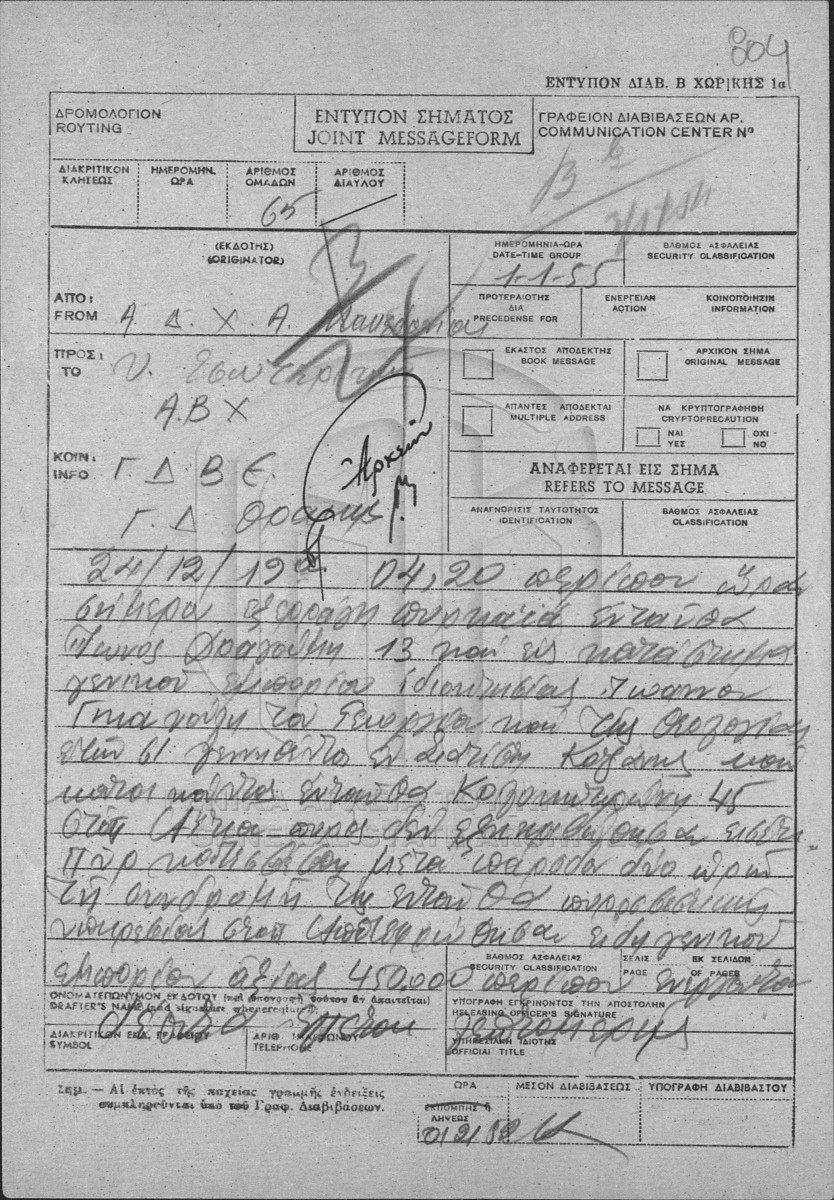 804
ΕΝΤΥΠΟΝ ΔΙΑΒ. Β ΧΩΡ|ΚΗΣ 1α
ΔΡΟΜΟΛΟΓΙΟΝ
ROYTING
ΕΝΤΥΠΟΝ ΣΗΜΑΤΟΣ
JOINT MESSAGEFORM
ΓΡΑΦΕΙΟΝ ΔΙΑΒΙΒΑΣΕΩΝ ΑΡ.
COMMUNICATION CENTER Nº
ΔΙΑΚΡΙΤΙΚΟΝ
ΚΛΗΣΕΩΣ
ΗΜΕΡΟΜΗΝ.
ΩΡΑ
ΑΡΙΘΜΟΣ
ΟΜΑΔΩΝ
65
ΑΡΙΘΜΟΣ
ΔΙΑΥΛΟΥ
(ΕΚΔΟΤΗΣ)
(ORIGINATOR)
ΗΜΕΡΟΜΗΝΙΑ-ΩΡΑ
DATE-TIME GROUP
1-1-55
ΒΑΘΜΟΣ ΑΣΦΑΛΕΙΑΣ
SECURITY CLASSIFICATION
ΑΠΟ:
FROM Α. Δ. Χ. Α. Μακεδονίας
ΠΡΟΤΕΡΑΙΟΤΗΣ
ΔΙΑ
PRECEDENSE FOR
ΕΝΕΡΓΕΙΑΝ
ACTION
ΚΟΙΝΟΠΟΙΗΣΙΝ
INFORMATION
ΠΡΟΣ:
TO Υ. Εσωτερικών
Α.Β Χ
ΕΚΑΣΤΟΣ ΑΠΟΔΕΚΤΗΣ
BOOK MESSAGE
ΑΡΧΙΚΟΝ ΣΗΜΑ
ORIGINAL MESSAGE
ΑΠΑΝΤΕΣ ΑΠΟΔΕΚΤΑΙ
MULTIPLE ADDRESS
ΝΑ ΚΡΥΠΤΟΓΡΑΦΗΘΗ
CRYPTOPRECAUTION
ΝΑΙ
YES
ΟΧΙ
NO
Αρχείον
ΚΟΙΝ:
INFO Γ Δ Β Ε.
Γ. Δ Θράκης
ΑΝΑΦΕΡΕΤΑΙ ΕΙΣ ΣΗΜΑ
REFERS TO MESSAGE
ΑΝΑΓΝΩΡΙΣΙΣ ΤΑΥΤΟΤΗΤΟΣ
IDENTIFICATION
ΒΑΘΜΟΣ ΑΣΦΑΛΕΙΑΣ
CLASSIFICATION
24/12/19 04,20 περίπου ώραν
σήμερα εξερράγη πυρκαϊά ενταύθα
Ίωνος Δραγούμη 13 και εις κατάστημα
γενικού εμπορίου ιδιοκτησίας Ιωάννου
του Γεωργίου και της Θεολογίας
ετών 61 γεννηθέντα εν Κοζάνης και
κατοικούντος ενταύθα 45
στοπ Αίτια πυράς δεν εξηκριβώθησαν εισέτι
Πυρ κατεσβέσθη μετά πάροδον δύο ωρών
τη συνδρομή της ενταύθα πυροσβεστικής
υπηρεσίας στοπ Απετεφρώθησαν είδη γενικού
εμπορίου αξίας 450.000 περίπου
ΒΑΘΜΟΣ ΑΣΦΑΛΕΙΑΣ
SECURITY CLASSIFICATION
ΣΕΛΙΣ
PAGE
ΕΚ ΣΕΛΙΔΩΝ
OF PAGES
ΟΝΟΜΑΤΕΠΩΝΥΜΟΝ ΕΚΔΟΤΟΥ (καὶ ὑπογραφὴ τούτου ἐν ἀπαιτεῖται)
DRAFTER'S NAME (and signature when required)
ΥΠΟΓΡΑΦΗ ΕΓΚΡΙΝΟΝΤΟΣ ΤΗΝ ΑΠΟΣΤΟΛΗΝ
RELEASING OFFICER'S SIGNATURE
ΔΙΑΚΡΙΤΙΚΟΝ ΕΚΔ. ΓΡΑΦΕΙΟΥ
SYMBOL
ΑΡΙΘ. ΤΗΛΕΦΩΝΟΥ
TELEPHONE
ΥΠΗΡΕΣΙΑΚΗ ΙΔΙΟΤΗΣ
OFFICIAI TITLE
Σημ. — Αἱ ἐκτὸς τῆς παχείας γραμμῆς ἐνδείξεις
συμπληροῦνται ὑπὸ τοῦ Γραφ. Διαβιβάσεων.
ΩΡΑ
ΕΚΠΟΜΠΗΣ ή
ΛΗΨΕΩΣ
ΜΕΣΟΝ ΔΙΑΒΙΒΑΣΕΩΣ
ΥΠΟΓΡΑΦΗ ΔΙΑΒΙΒΑΣΤΟΥ